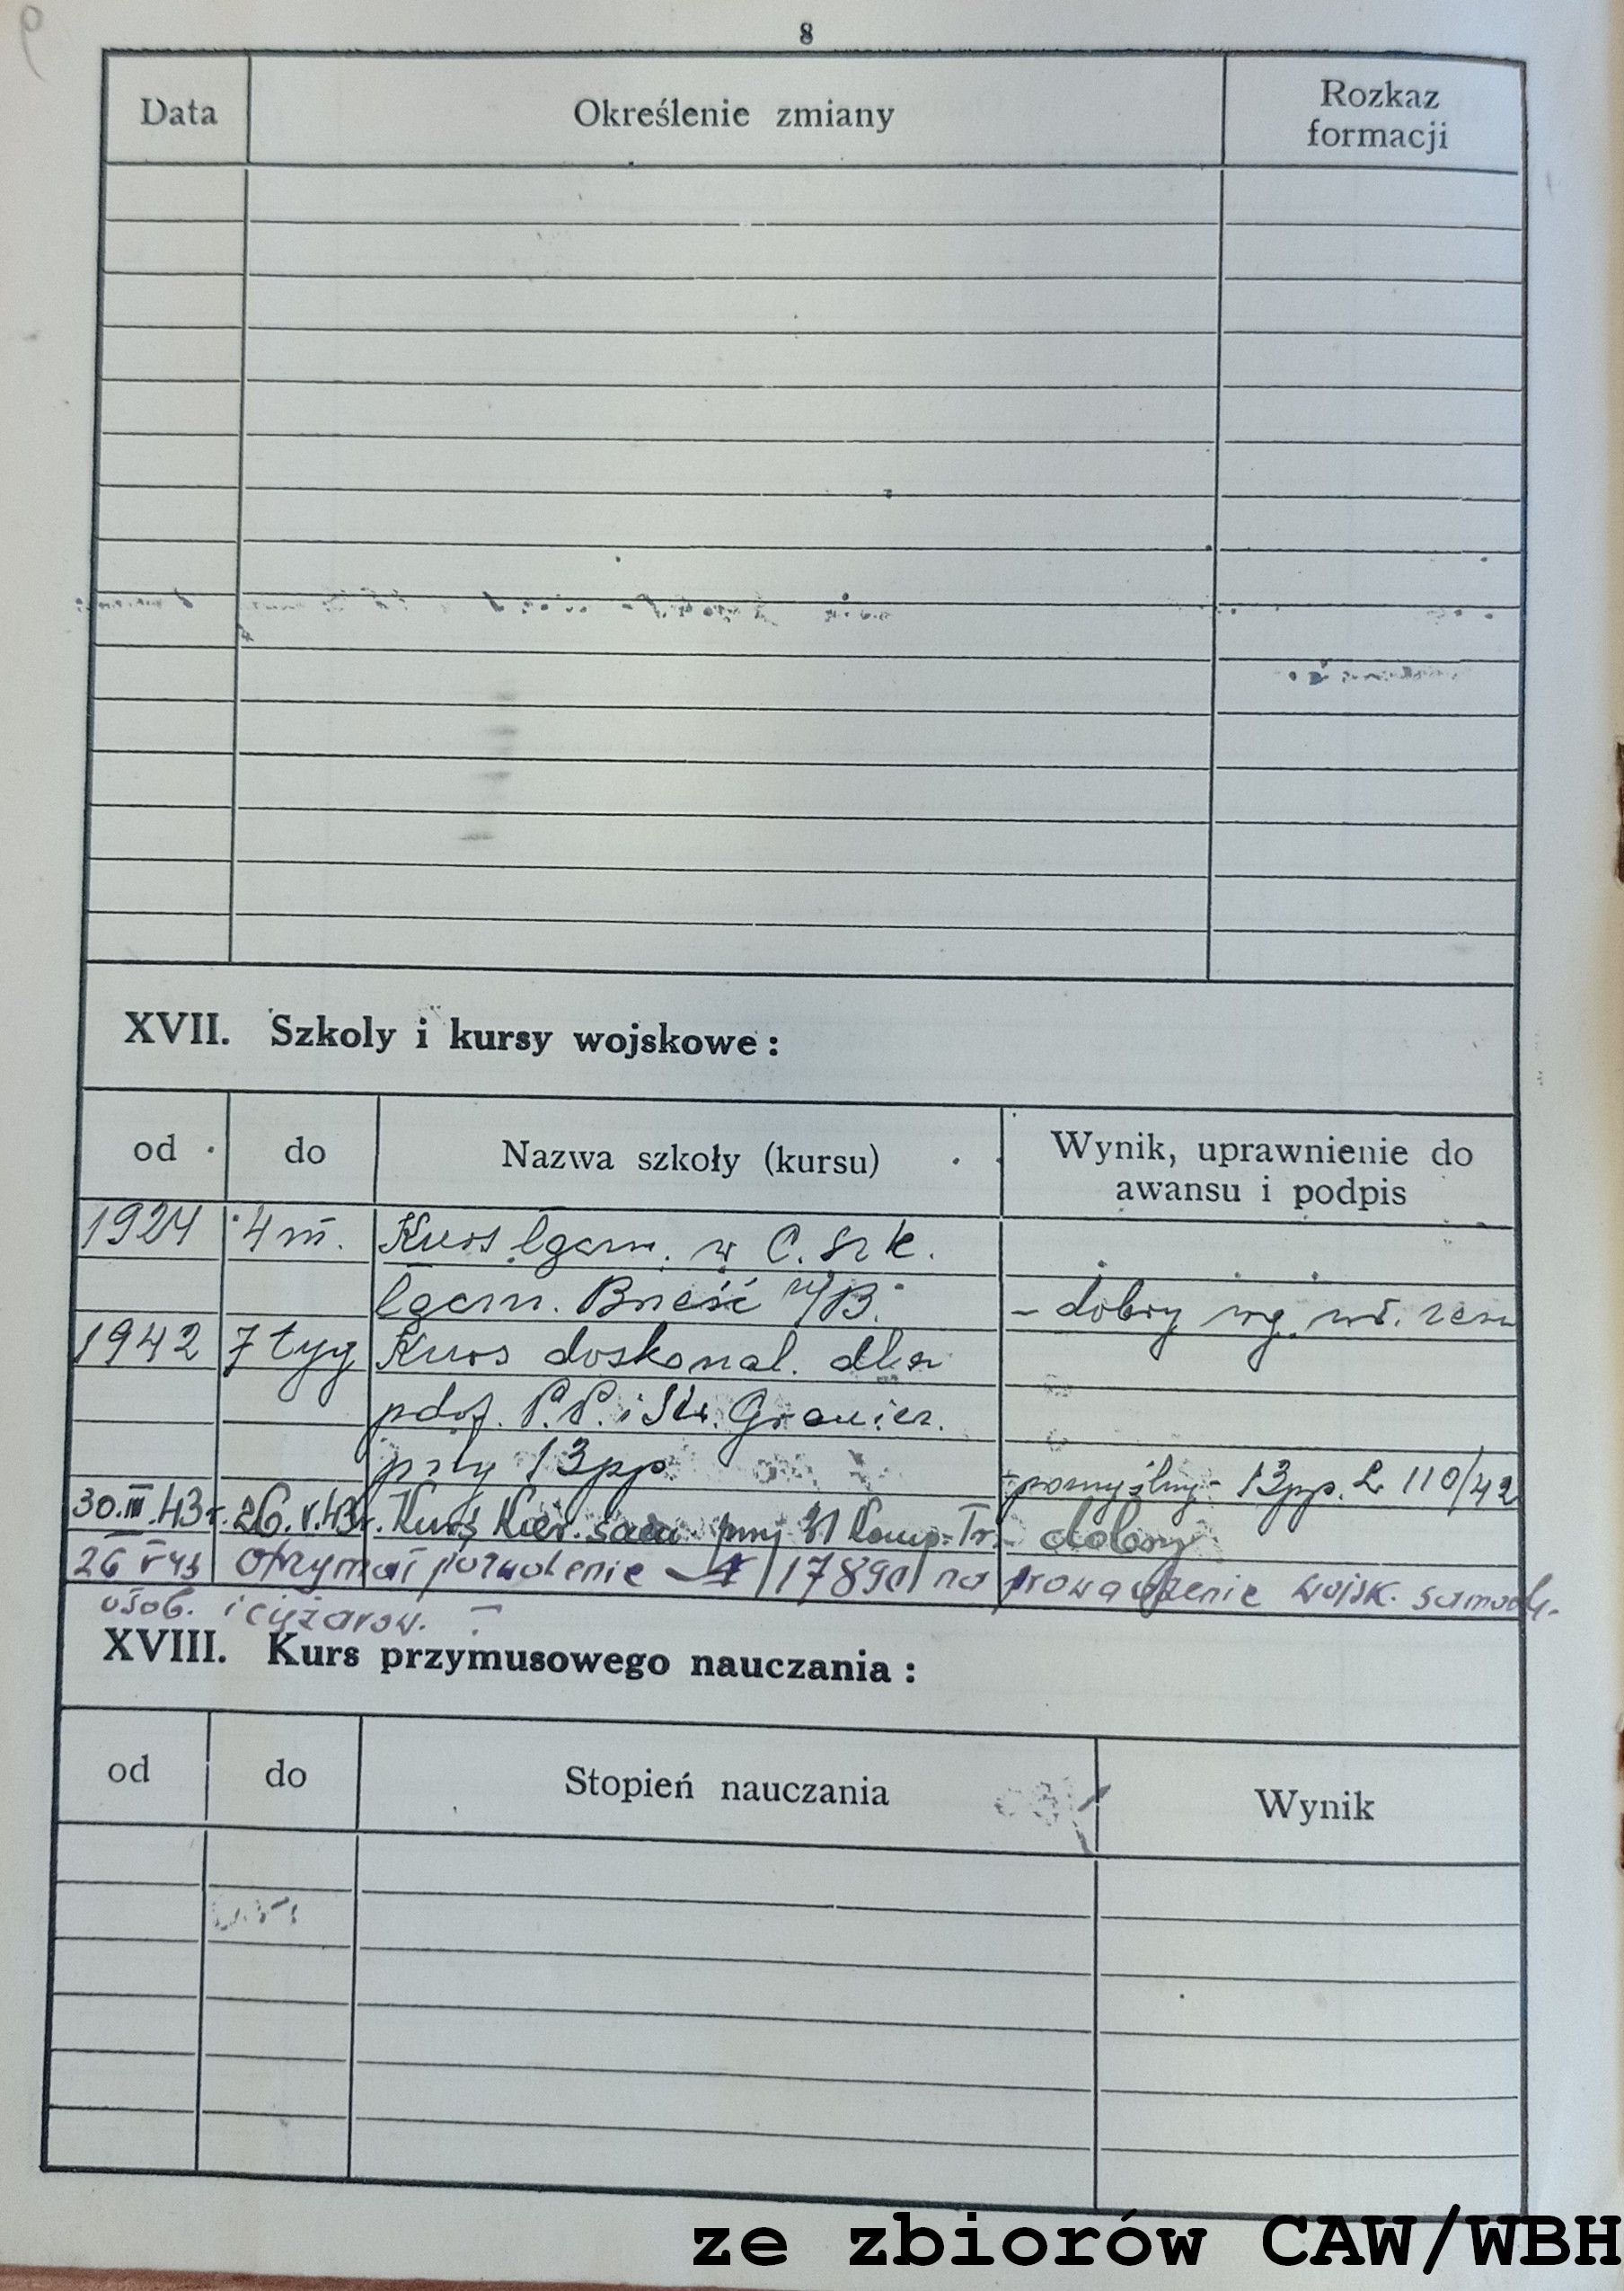 8
Data Określenie zmiany Rozkaz formacji
XVII. Szkoly i kursy wojskowe:
od do Nazwa szkoły (kursu) Wynik, uprawnienie do awansu i podpis
1924 4 m. Kurs w C. Szk.
Brześć n/B. - dobry wg. wł. zezn
1942 7 tyg Kurs doskonal. dla
pdof. P.P. i Sw. Granicz.
przy 13pp - pomyślny - 13pp. L. 110/42
30.III.43r. 26.V.43r. Kurs Kier. sam. przy 31 Komp. Tr. - dobry
26 V 43 otrzymał pozwolenie 17890 na prowadzenie wojsk. samoch.
osob. i ciężarow. -
XVIII. Kurs przymusowego nauczania:
od do Stopień nauczania Wynik
ze zbiorów CAW/WBH